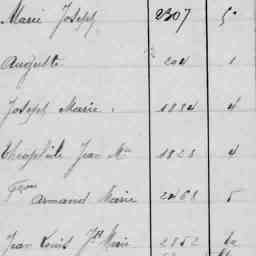 Marie Joseph 2307 5
Auguste 204 1
Joseph Marie 1884 4
Théophile Jean Mie 1828 4
Fçois Armand Marie 2468 5
Jean Louis Jh Marie 2852